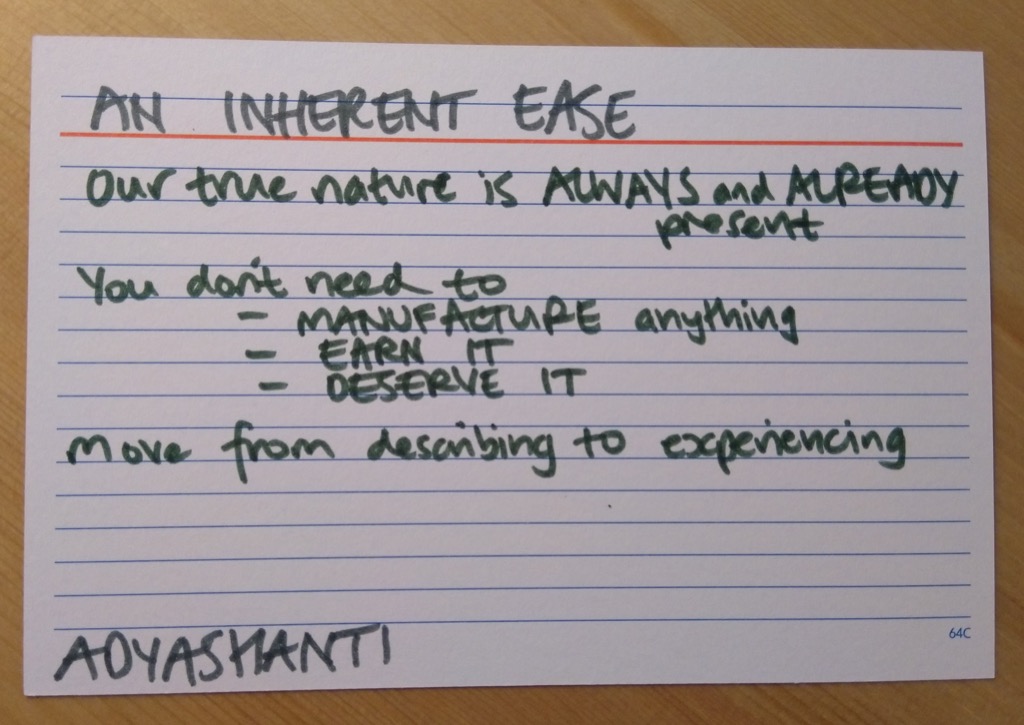 AN INHERENT EASE
Our true nature is ALWAYS and ALREADY
present
You don't need to
- MANUFACTURE anything
- EARN IT
- DESERVE IT
Move from describing to experiencing
64C
ADYASHANTI